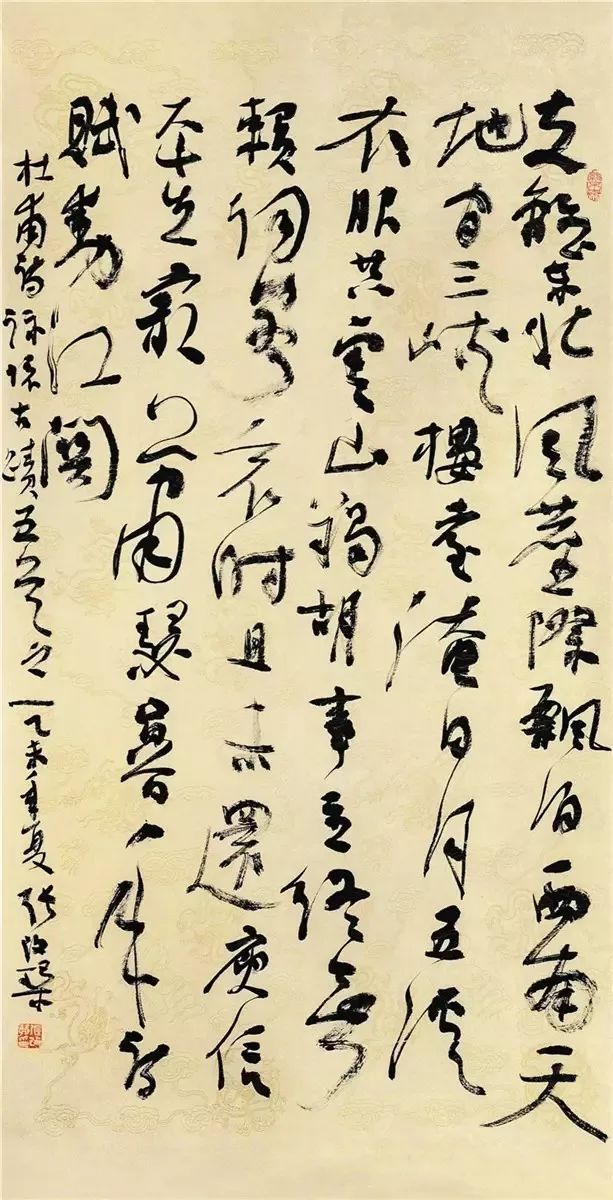 支離東北風塵際飄泊西南天
地間三峽樓臺淹日月五溪
衣服共雲山羯胡事主終無
賴詞客哀時且未還庾信
平生最蕭瑟暮年詩
賦動江關
杜甫詩詠懷古蹟五首之一乙未年夏張改琴